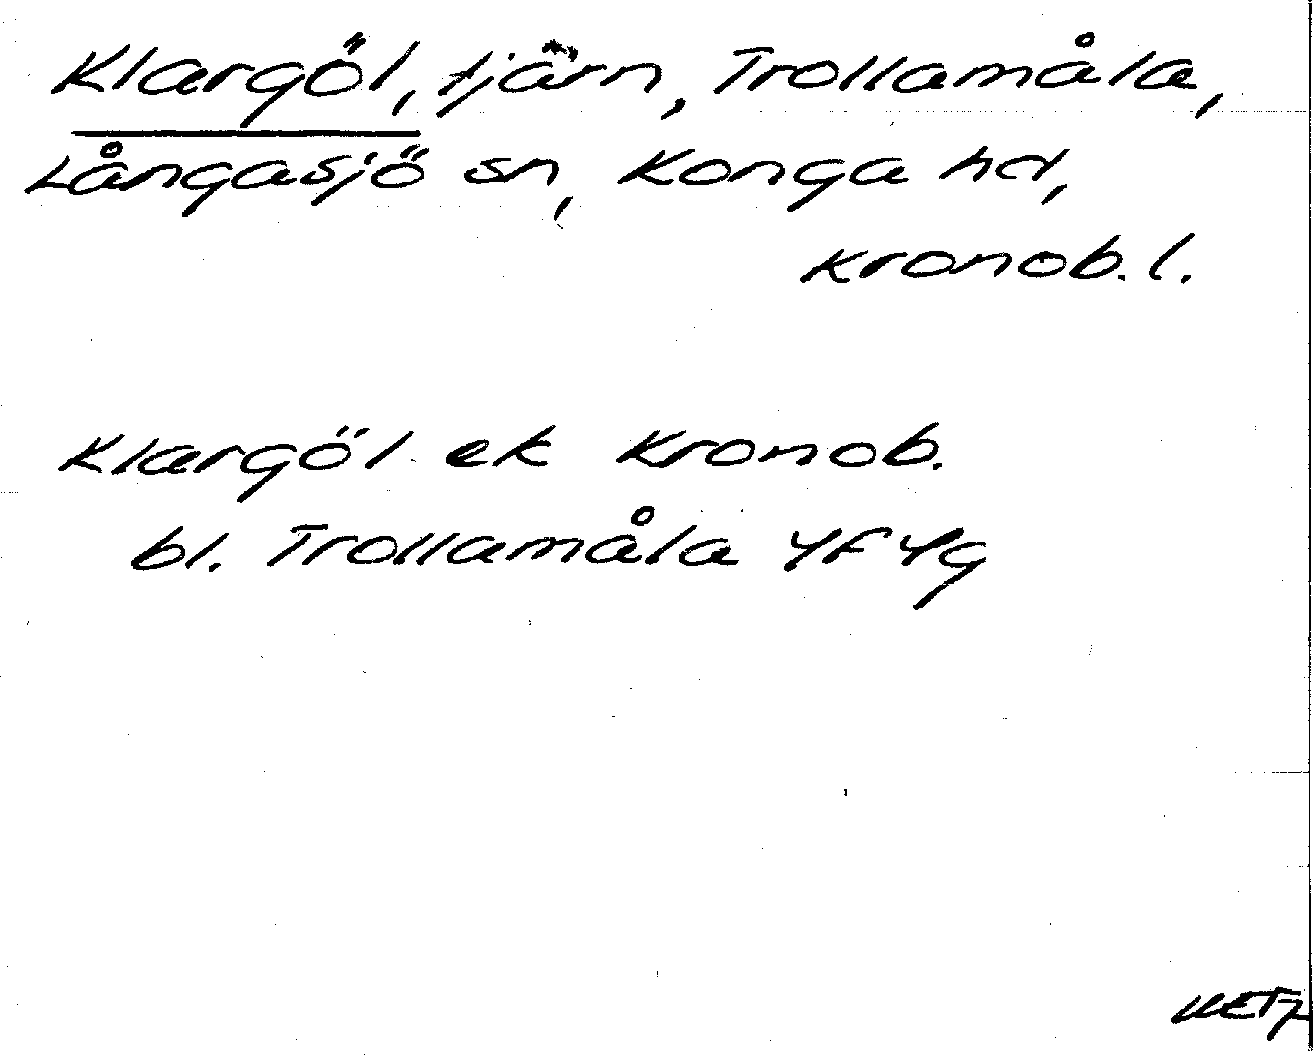 Klargöl, tjärn, Trollamåla,
Långasjö sn, Konga hd,
Kronob. l.
Klargöl ek Kronob.
bl. Trollamåla 4F4g